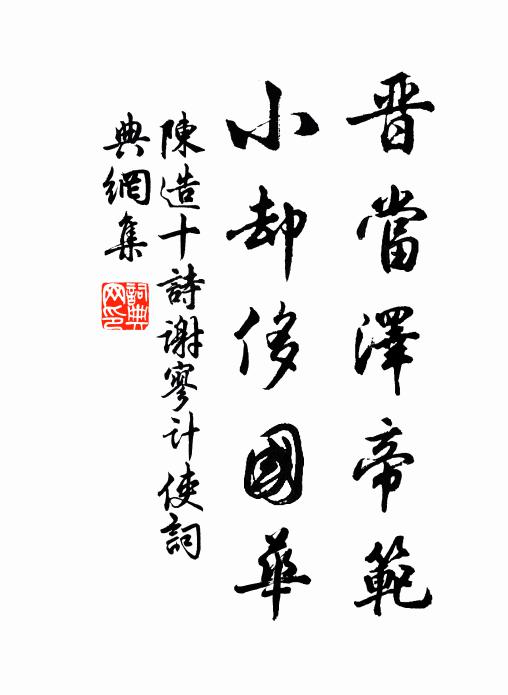 晋當澤帝範
小却侈國華
陳造十詩謝寥計使詞
典網集
詞典網印